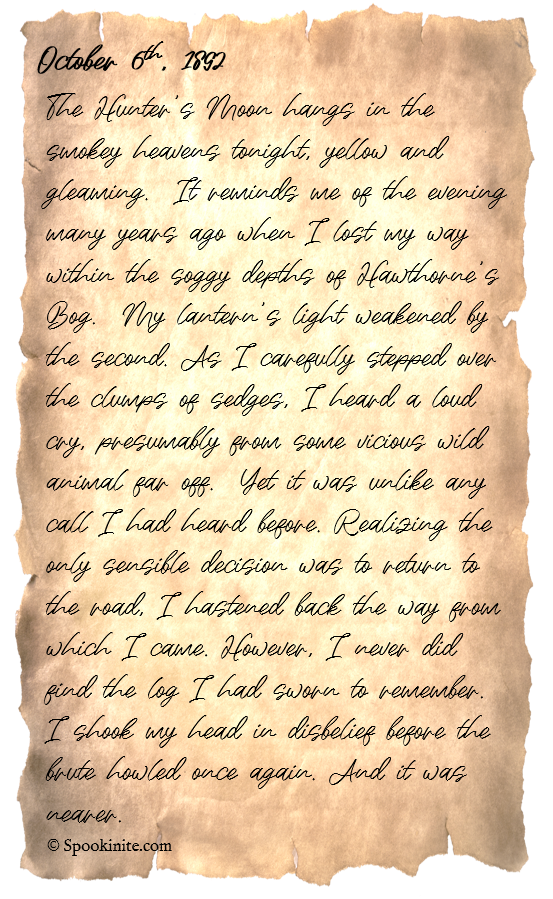 October 6th, 1892
The Hunter's Moon hangs in the
smokey heavens tonight, yellow and
gleaming. It reminds me of the evening
many years ago when I lost my way
within the soggy depths of Hawthorne's
Bog. My lantern's light weakened by
the second. As I carefully stepped over
the clumps of sedges, I heard a loud
cry, presumably from some vicious wild
animal far off. Yet it was unlike any
call I had heard before. Realizing the
only sensible decision was to return to
the road, I hastened back the way from
which I came. However, I never did
find the log I had sworn to remember.
I shook my head in disbelief before the
brute howled once again. And it was
nearer.
© Spookinite.com